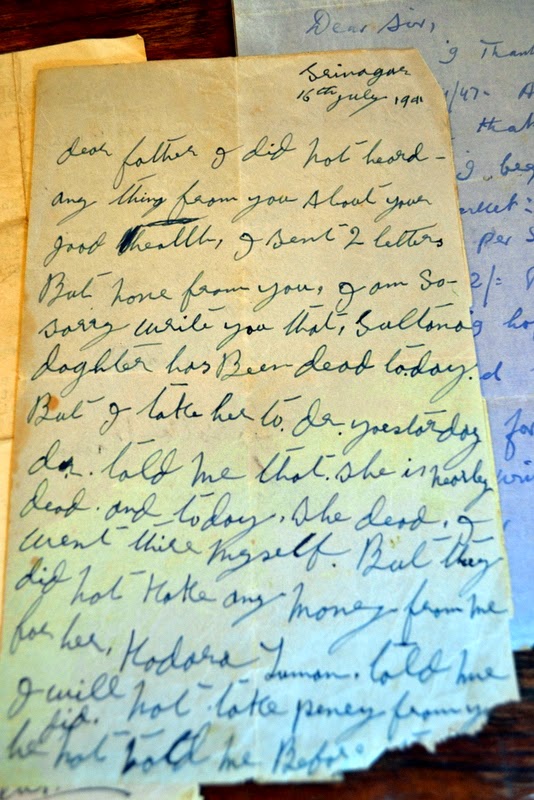 Srinagar
16th July 194
dear father I did not heard
any thing from you about your
good health, I sent 2 letters
But none from you, I am so
sorry write you that, Sultana
doghter has Been dead today.
But I take her to. dr. yoesterday
dr. told me that she is nearley
dead. and today. she dead, I
went there myself. But they
did not take any money from me
for her, told me
I will not take peney from yo
did.
he not told me Before
Dear Sir,
Thank
1/47-
thak
per
2/-
for